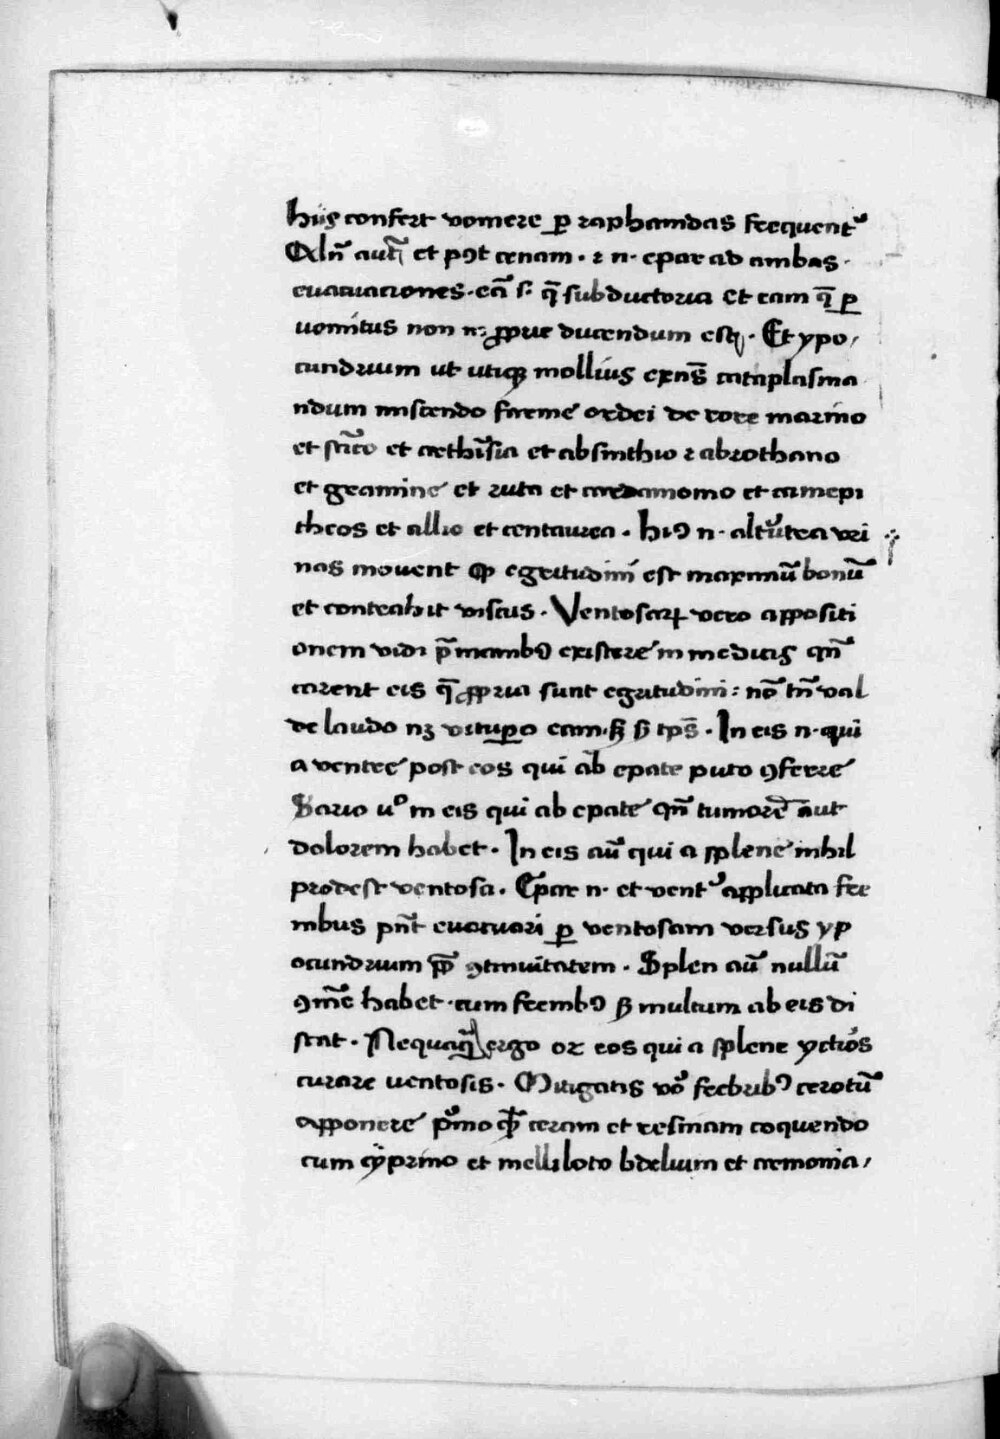 hiis confert vomere ꝑ raphamdas frequentͬ
Aln̄ aut̄ et pꝰt cenam · ⁊ n · epar ad ambas ·
euacuaciones · eā s · q̄ subductoria et eam q̄ ꝑ
uomitus non nꝫ ꝓprie ducendum est · Et ypo/
cundrium ut utiqꝫ mollius exn̄s cataplasma
ndum miscendo farine ordei de rore marino
et et arthīsia et absinthio ⁊ abrothano
et gramine et ruta et cardamomo et camepi
theos et allio et centaurea · hiꝰ n · alt̄utra vri
nas mouent ꝙ egritudini est maximū bonū
et contrahit viscus · Ventosaꝝ vero appositi
onem vidi p̄ manibꝰ existere in medicis qn̄
carent eis q̄ ꝓpria sunt egritudini : nō tn̄ val
de laudo nꝫ vitupo eam · hꝫ tp̄s · In eis n · qui
a ventre post eos qui ab epate puto ꝯferre
Rario uͦ in eis qui ab epate qn̄ tumorē aut
dolorem habet · In eis aū qui a splene nihil
prodest ventosa · Epar n · et ventͬ applicata fre
nibus pn̄t euacuari ꝑ ventosam versus yp
ocundrium ꝓp̄ ꝯtinuitatem · Splen aū nullū
ꝯīne habet · cum frenibꝰ sꝫ multum ab eis di
stat · Nequaq̄ ergo or eos qui a splene yctiōs
curare uentosis · Mitigatis vͦo febribꝰ cerotū
apponere p̄mo ꝙ ceram et resinam coquendo
cum cyprino et melliloto bdelium et armonia/